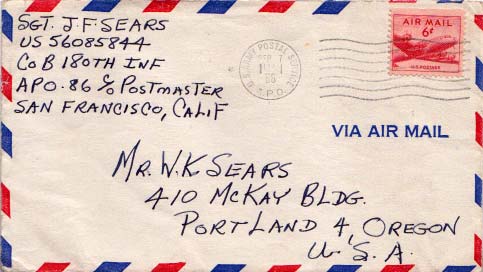 SGT. J.F. SEARS
US 56085844
CO B 180TH INF
APO. 86 C/O POSTMASTER
SAN FRANCISCO, CALIF
AIR MAIL
6¢
U.S. POSTAGE
POSTAL SERVICE
VIA AIR MAIL
MR. W.K SEARS
410 MCKAY BLDG.
PORTLAND 4, OREGON
U.S.A.